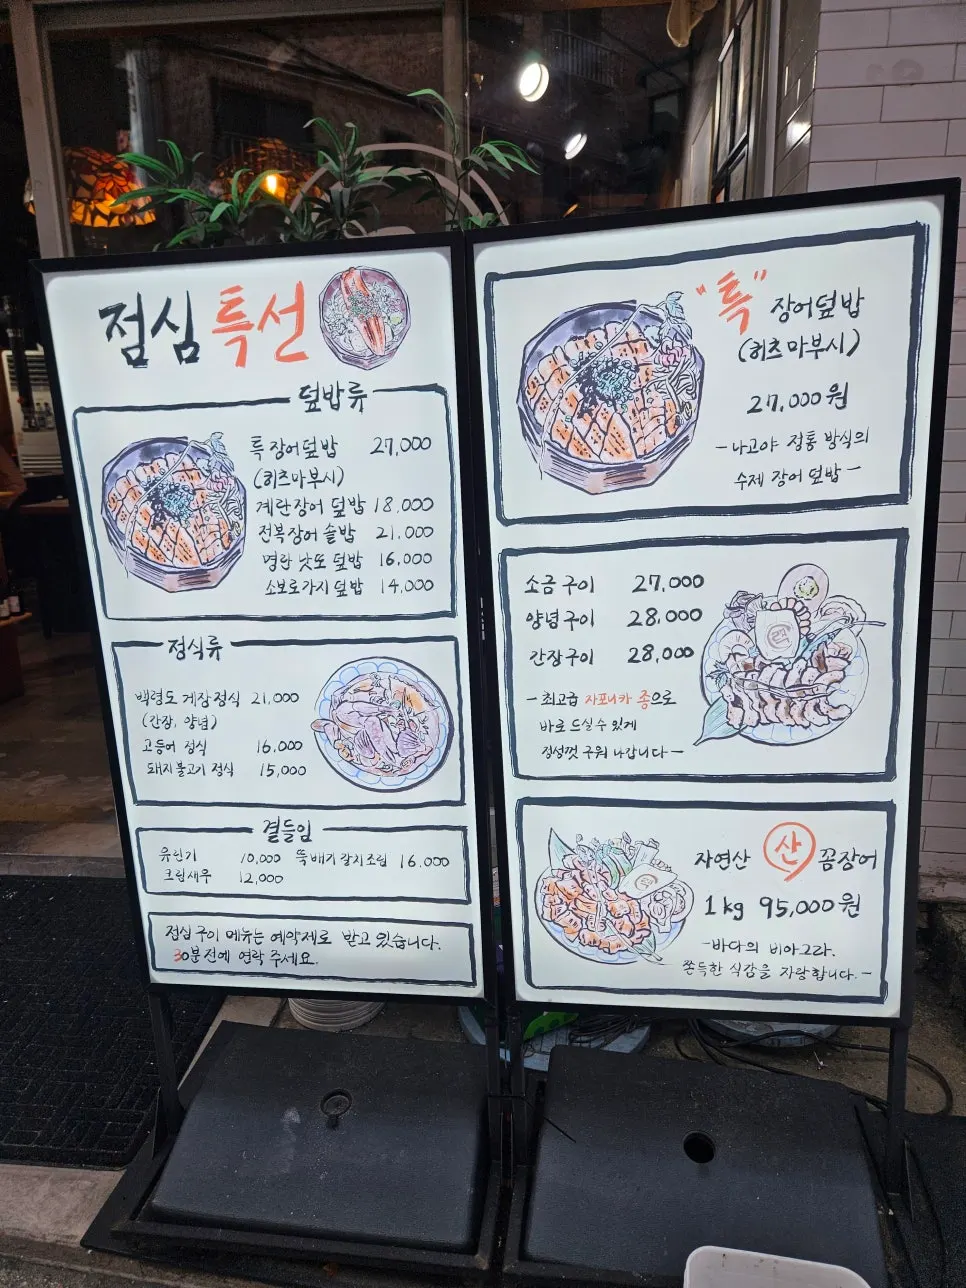 점심 특선
덮밥류
특 장어덮밥 27,000
(히츠마부시)
계란장어 덮밥 18,000
전복장어 솥밥 21,000
명란 낫또 덮밥 16,000
소보로가지 덮밥 14,000
정식류
백령도 게장정식 21,000
(간장, 양념)
고등어 정식 16,000
돼지불고기 정식 15,000
곁들임
유린기 10,000 뚝배기 갈치조림 16,000
크림새우 12,000
점심 구이 메뉴는 예약제로 받고 있습니다.
30분전에 연락 주세요.
"특" 장어덮밥
(히츠마부시)
27,000원
-나고야 정통 방식의
수제 장어 덮밥-
소금구이 27,000
양념구이 28,000
간장구이 28,000
-최고급 자포니카 종으로
바로 드실수 있게
정성껏 구워 나갑니다-
자연산 산 꼼장어
1kg 95,000원
-바다의 비아그라.
쫀득한 식감을 자랑합니다.-